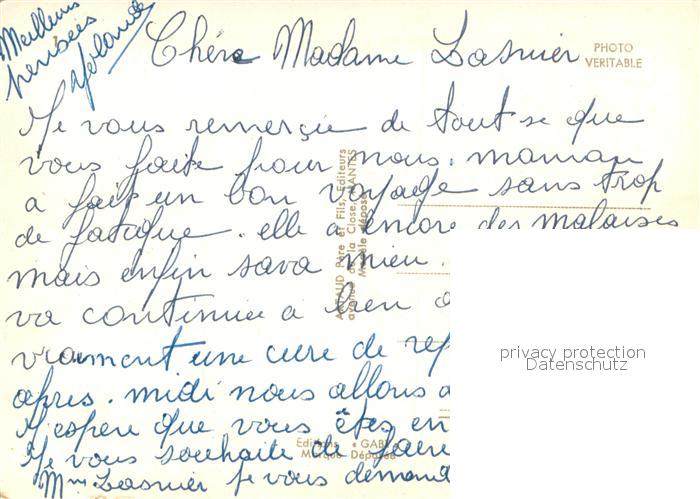 Meilleurs
pensées
Yolande
Chère Madame Lasnier
PHOTO
VERITABLE
Je vous remerçie de tout se que
vous faite pour nous. maman
a fait un bon voyage sans trop
de fatigue. elle a encore des malaises
mais enfin sava mieu.
va continuer a bien
vraiment une cure de rep
après. midi nous allons a
J'espère que vous êtes en
Je vous souhaite de
Mme Lasnier je vous demand
ARTAUD Père et Fils, Editeurs
avenue de la Close, NANTES
Modèle déposé
Editions "GABY"
Marque Déposée
privacy protection
Datenschutz